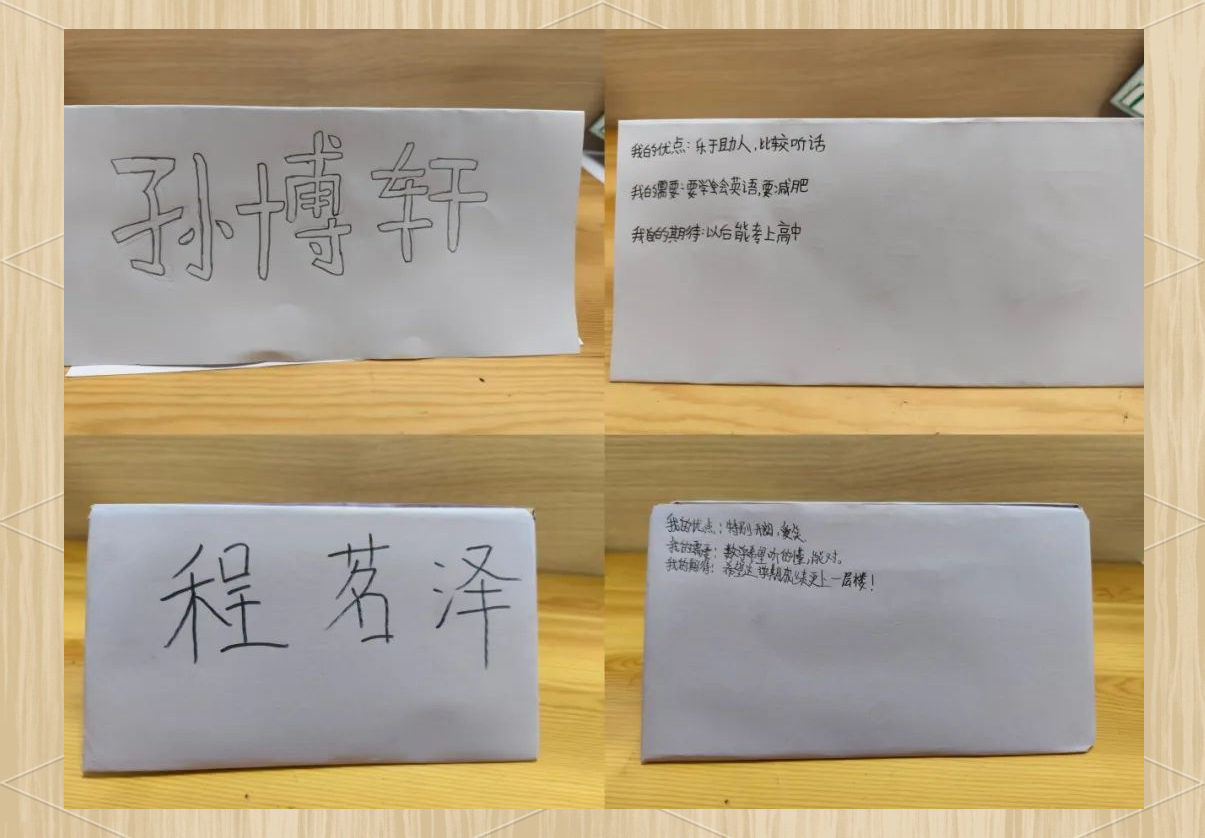 孙博轩
我的优点:乐于助人,比较听话
我的需要:要学会英语,要减肥
我的期待:以后能考上高中
程茗泽
我的优点:特别开朗,爱笑
我的需要:数学希望听的懂,能对。
我的期待:希望这学期成绩更上一层楼!